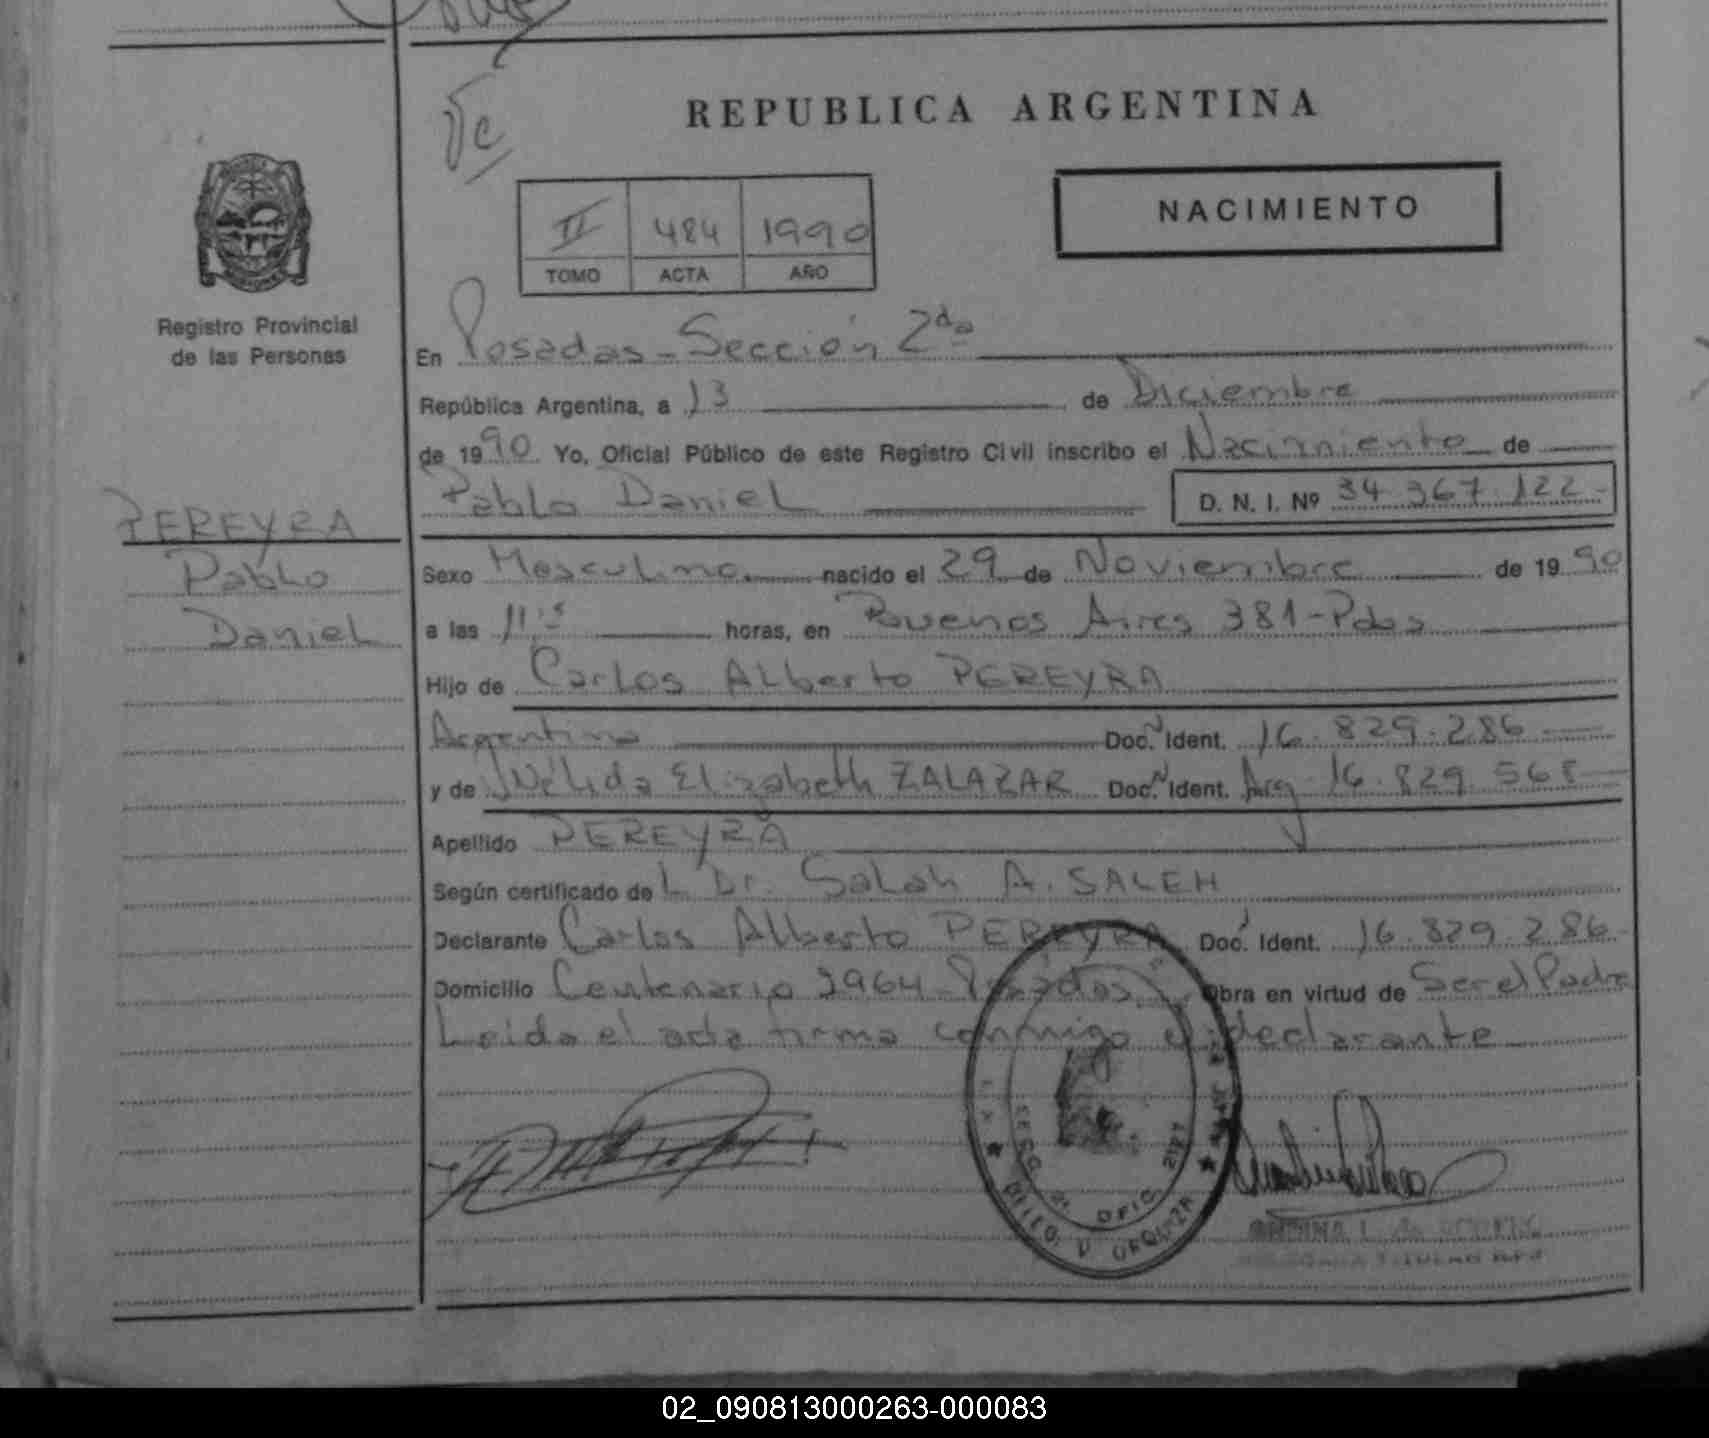 REPUBLICA ARGENTINA
NACIMIENTO
II 484 1990
TOMO ACTA AÑO
Registro Provincial
de las Personas
En Posadas - Sección 2da
República Argentina, a 13 de Diciembre
de 1990 Yo, Oficial Público de este Registro Civil inscribo el Nacimiento de
Pablo Daniel D. N. I. Nº 34.367.122-
PEREYRA
Pablo
Daniel
Sexo Masculino nacido el 29 de Noviembre de 1990
a las 11,5 horas, en Buenos Aires 381-Pdas
Hijo de Carlos Alberto PEREYRA
Argentino Doc. Ident. 16.829.286
y de Nélida Elizabeth ZALAZAR Doc. Ident. Arg. 16.829.568
Apellido PEREYRA
Según certificado del Dr. Salah A. SALEH
Declarante Carlos Alberto PEREYRA Doc. Ident. 16.829.286-
Domicilio Centenario 2964-Posadas Obra en virtud de Ser el Padre
Leida el acta firma conmigo el declarante
02_090813000263-000083